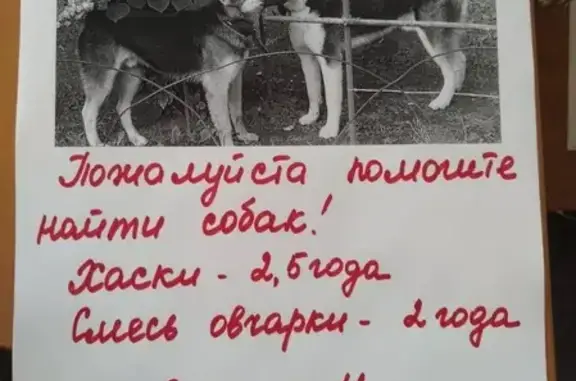 Пожалуйста помогите
найти собак!
Хаски - 2,5 года
Смесь овчарки - 2 года